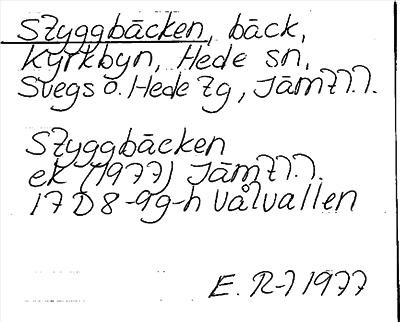 Styggbäcken, bäck,
Kyrkbyn, Hede sn,
Svegs o. Hede tg, Jämtl.l.
Styggbäcken
ek (1977) Jämtl.l.
17D8-9g-h Vålvallen
E. R-l 1977